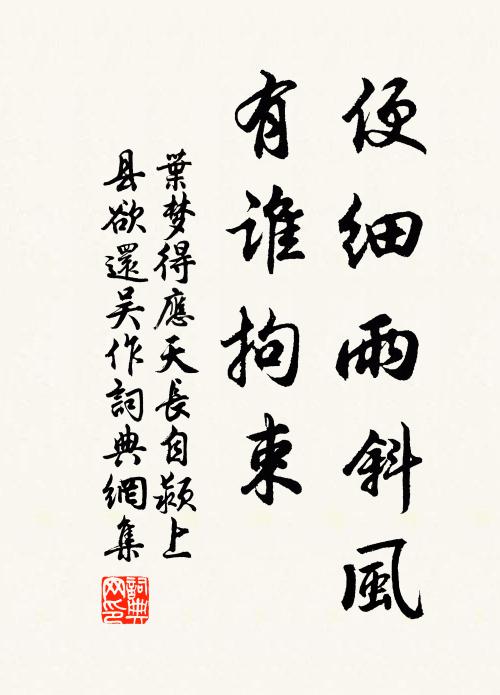 便细雨斜風
有谁拘束
葉梦得應天長自颍上
县欲還吴作詞典網集
詞典
网印